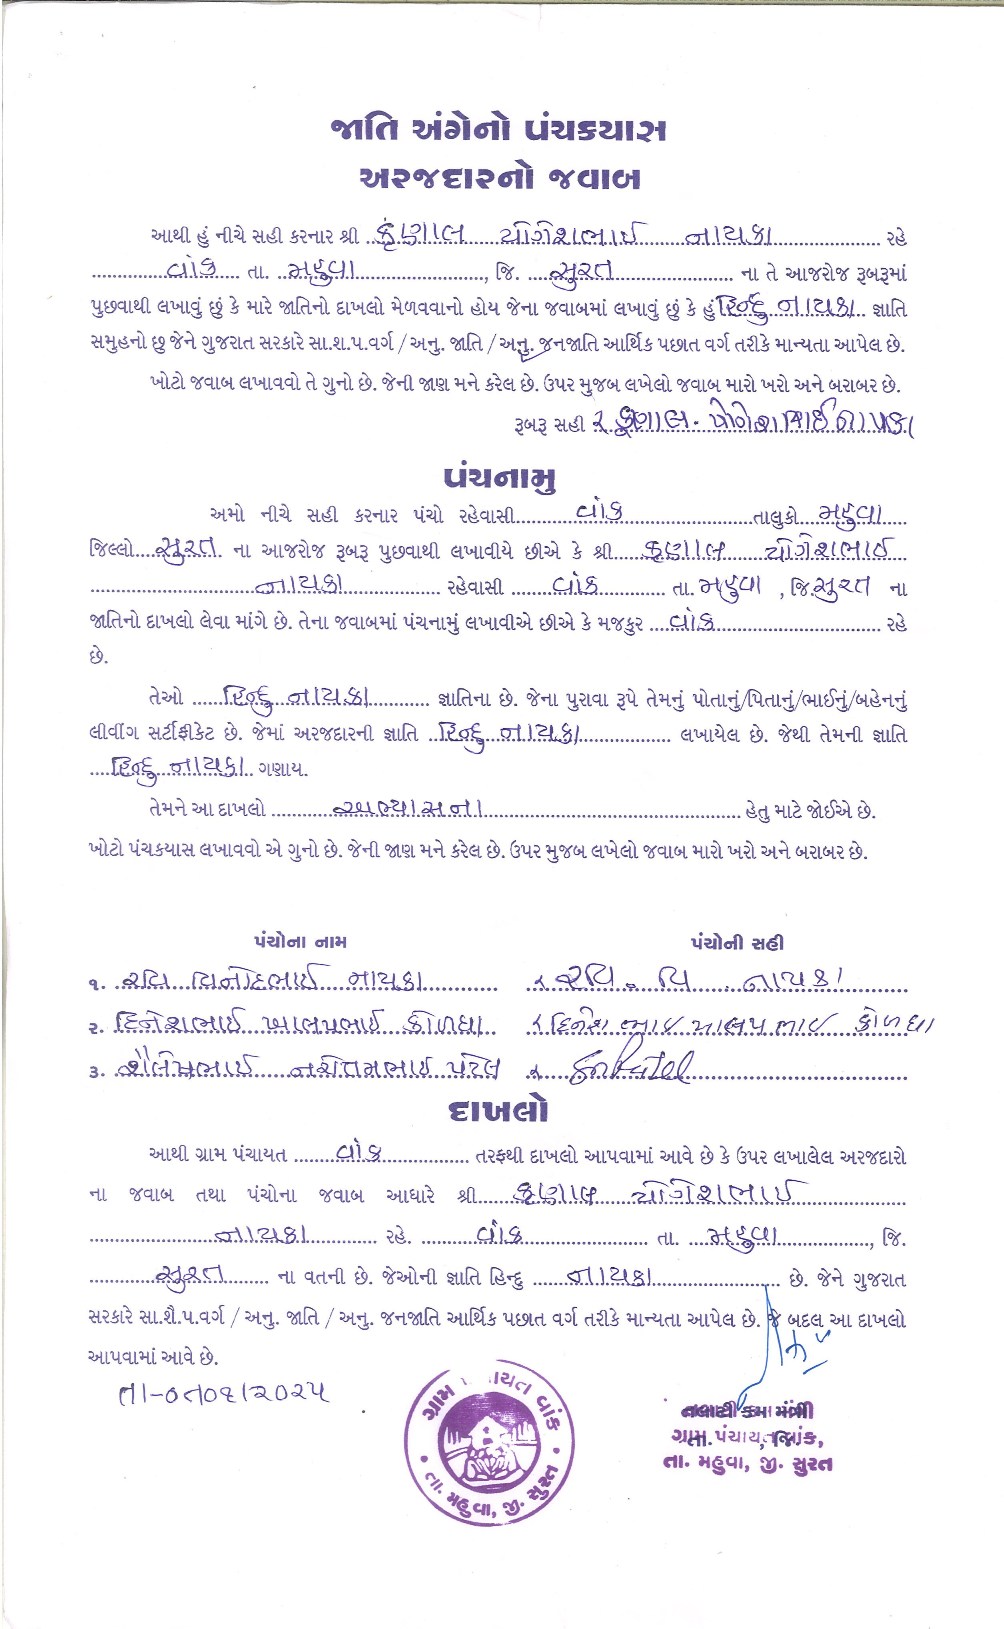 જાતિ અંગેનો પંચકયાસ
અરજદારનો જવાબ
આથી હું નીચે સહી કરનાર શ્રી કૃણાલ યોગેશભાઈ નાયકા રહે
વાંક તા. મહુવા, જિ. સુરત ના તે આજરોજ રૂબરૂમાં
પુછવાથી લખાવું છું કે મારે જાતિનો દાખલો મેળવવાનો હોય જેના જવાબમાં લખાવું છું કે હું હિન્દુ નાયકા જ્ઞાતિ
સમુહનો છુ જેને ગુજરાત સરકારે સા.શ.પ.વર્ગ / અનુ. જાતિ / અનુ. જનજાતિ આર્થિક પછાત વર્ગ તરીકે માન્યતા આપેલ છે.
ખોટો જવાબ લખાવવો તે ગુનો છે. જેની જાણ મને કરેલ છે. ઉપર મુજબ લખેલો જવાબ મારો ખરો અને બરાબર છે.
રૂબરૂ સહી કૃણાલ. યોગેશભાઈ નાયકા
પંચનામુ
અમો નીચે સહી કરનાર પંચો રહેવાસી વાંક તાલુકો મહુવા
જિલ્લો સુરત ના આજરોજ રૂબરૂ પુછવાથી લખાવીયે છીએ કે શ્રી કૃણાલ યોગેશભાઈ
નાયકા રહેવાસી વાંક તા. મહુવા, જિ. સુરત ના
જાતિનો દાખલો લેવા માંગે છે. તેના જવાબમાં પંચનામું લખાવીએ છીએ કે મજકુર વાંક રહે
છે.
તેઓ હિન્દુ નાયકા જ્ઞાતિના છે. જેના પુરાવા રૂપે તેમનું પોતાનું/પિતાનું/ભાઈનું/બહેનનું
લીવીંગ સર્ટીફીકેટ છે. જેમાં અરજદારની જ્ઞાતિ હિન્દુ નાયકા લખાયેલ છે. જેથી તેમની જ્ઞાતિ
હિન્દુ નાયકા ગણાય.
તેમને આ દાખલો અભ્યાસના હેતુ માટે જોઈએ છે.
ખોટો પંચકયાસ લખાવવો એ ગુનો છે. જેની જાણ મને કરેલ છે. ઉપર મુજબ લખેલો જવાબ મારો ખરો અને બરાબર છે.
પંચોના નામ પંચોની સહી
૧. રવિ વિનોદભાઈ નાયકા રવિ. વિ. નાયકા
૨. દિનેશભાઈ ખાલપભાઈ કોળઘા દિનેશ ભાઈ ખાલપ ભાઈ કોળઘા
૩. શૈલેષભાઈ નરોત્તમભાઈ પટેલ
દાખલો
આથી ગ્રામ પંચાયત વાંક તરફથી દાખલો આપવામાં આવે છે કે ઉપર લખાલેલ અરજદારો
ના જવાબ તથા પંચોના જવાબ આધારે શ્રી કૃણાલ યોગેશભાઈ
નાયકા રહે. વાંક તા. મહુવા, જિ.
સુરત ના વતની છે. જેઓની જ્ઞાતિ હિન્દુ નાયકા છે. જેને ગુજરાત
સરકારે સા.શૈ.પ.વર્ગ / અનુ. જાતિ / અનુ. જનજાતિ આર્થિક પછાત વર્ગ તરીકે માન્યતા આપેલ છે. જે બદલ આ દાખલો
આપવામાં આવે છે.
તા-૦૧૦૧૨૦૨૫
ગ્રામ પંચાયત વાંક
તા. મહુવા, જી. સુરત
તલાટી કમ મંત્રી
ગ્રામ પંચાયત વાંક,
તા. મહુવા, જી. સુરત